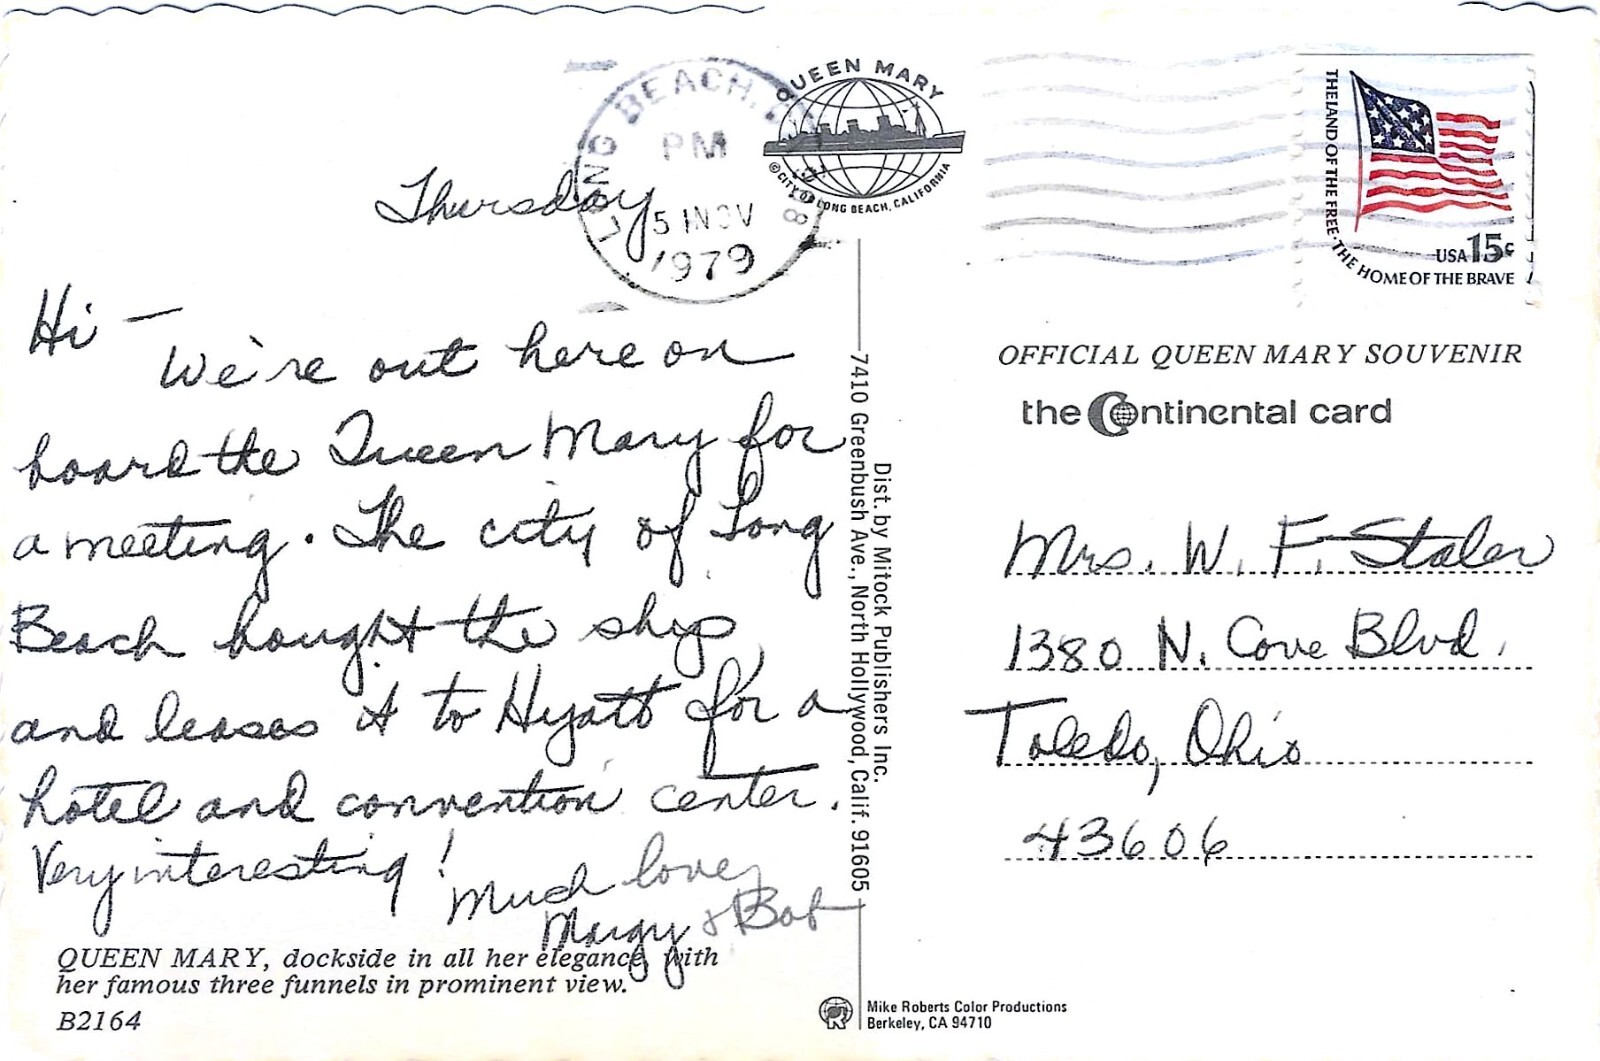 LONG BEACH, CA
PM
5 NOV
1979
908
QUEEN MARY
© CITY OF LONG BEACH, CALIFORNIA
THE LAND OF THE FREE · THE HOME OF THE BRAVE
USA 15c
Thursday
Hi —
We're out here on
board the Queen Mary for
a meeting. The city of Long
Beach bought the ship
and leases it to Hyatt for a
hotel and convention center.
Very interesting!
Much love,
Margy & Bob
QUEEN MARY, dockside in all her elegance, with
her famous three funnels in prominent view.
B2164
Dist. by Mitock Publishers Inc.
7410 Greenbush Ave., North Hollywood, Calif. 91605
OFFICIAL QUEEN MARY SOUVENIR
the Continental card
Mrs. W. F. Staler
1380 N. Cove Blvd.
Toledo, Ohio
43606
Mike Roberts Color Productions
Berkeley, CA 94710